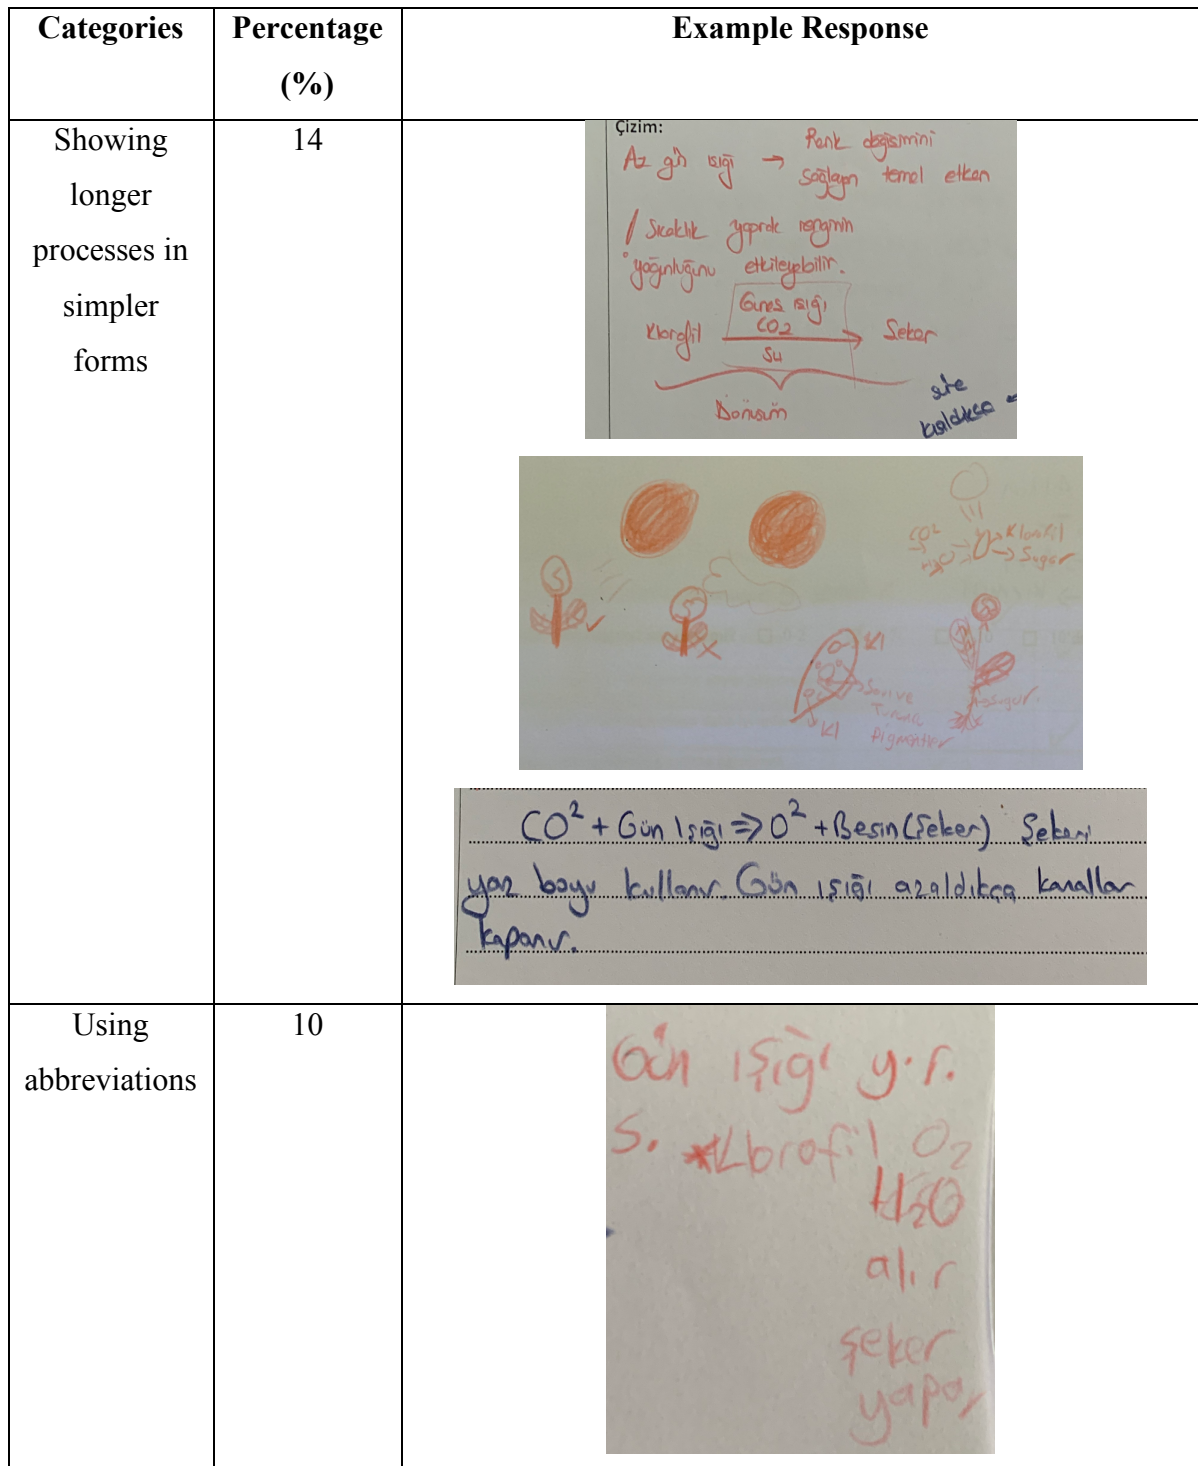 Categories
Percentage
(%)
Example Response
Showing
longer
processes in
simpler
forms
14
Çizim:
Az gün ışığı → Renk değişimini
sağlayan temel etken
Sıcaklık yaprak renginin
yoğunluğunu etkileyebilir.
Güneş ışığı
CO2
Klorofil → Şeker
Su
Dönüşüm
süre
kısaldıkça
CO²
H2O
→ Klorofil
→ Sugar
Kl
Sarı ve
Turuncu
Pigmentler
Kl
→ Sugar
CO² + Gün Işığı ⇒ O² + Besin (Şeker) Şekeri
yaz boyu kullanır. Gün ışığı azaldıkça kanallar
kapanır.
Using
abbreviations
10
Gün ışığı y.r.
S. Klorofil O2
H2O
alır
şeker
yapar